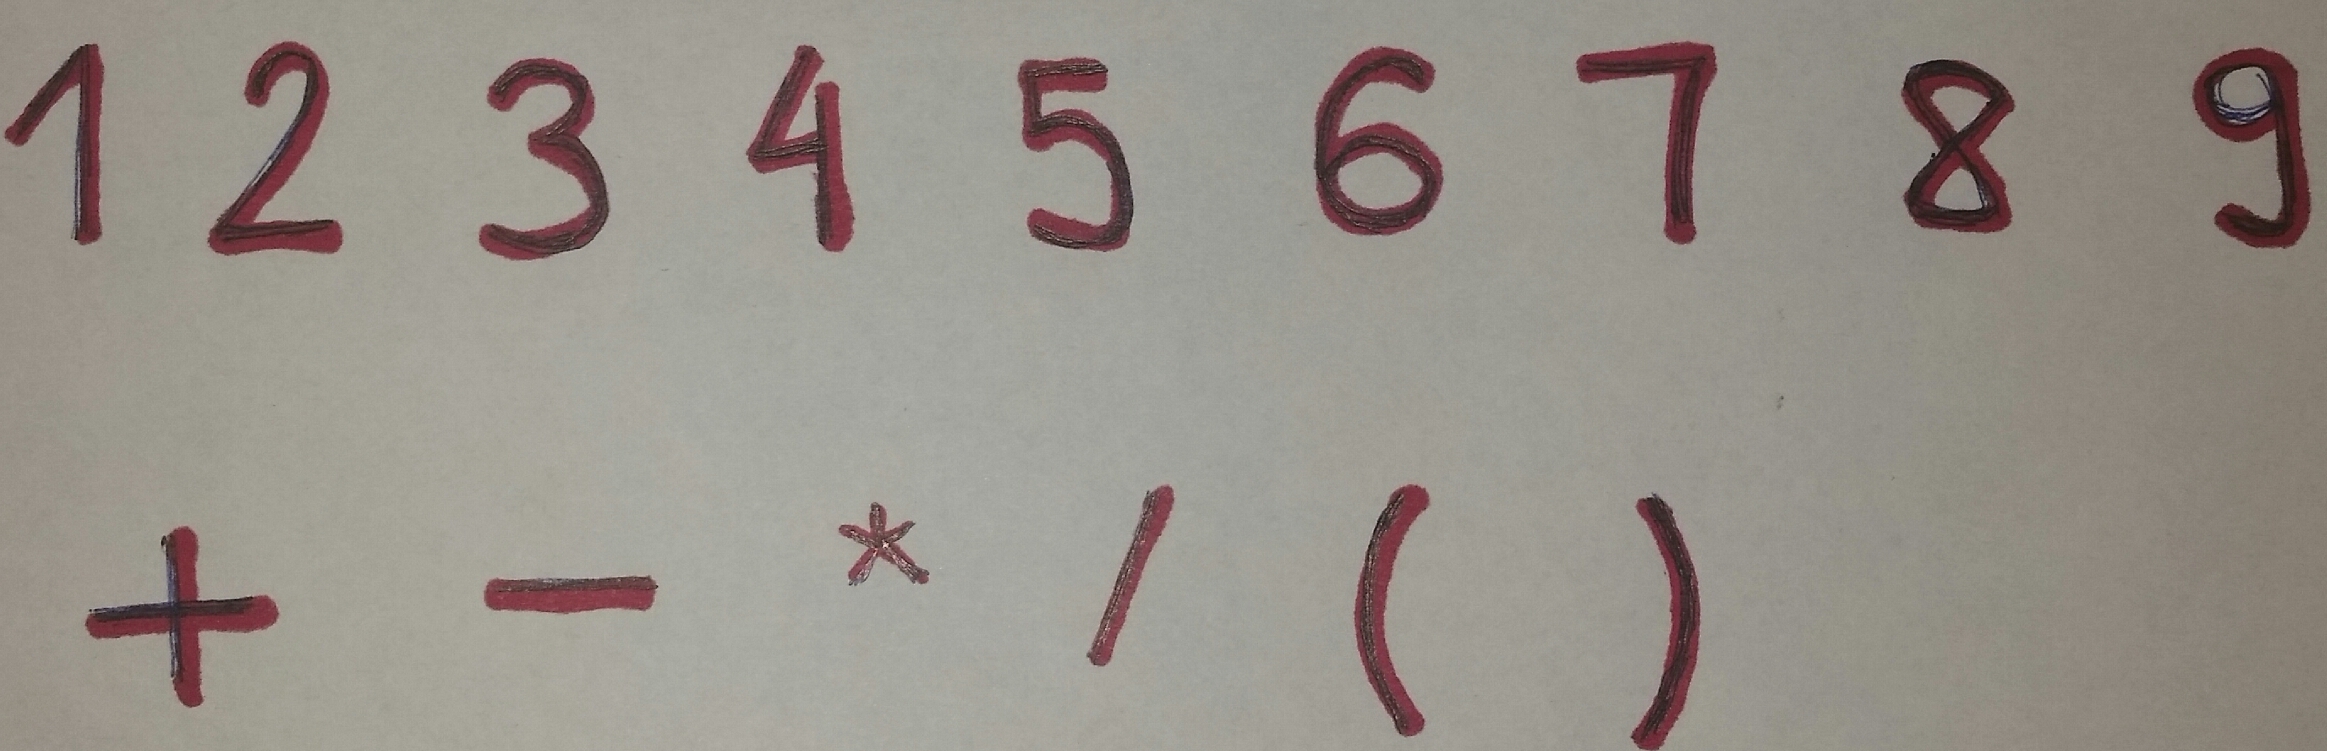 1 2 3 4 5 6 7 8 9
+ - * / ( )